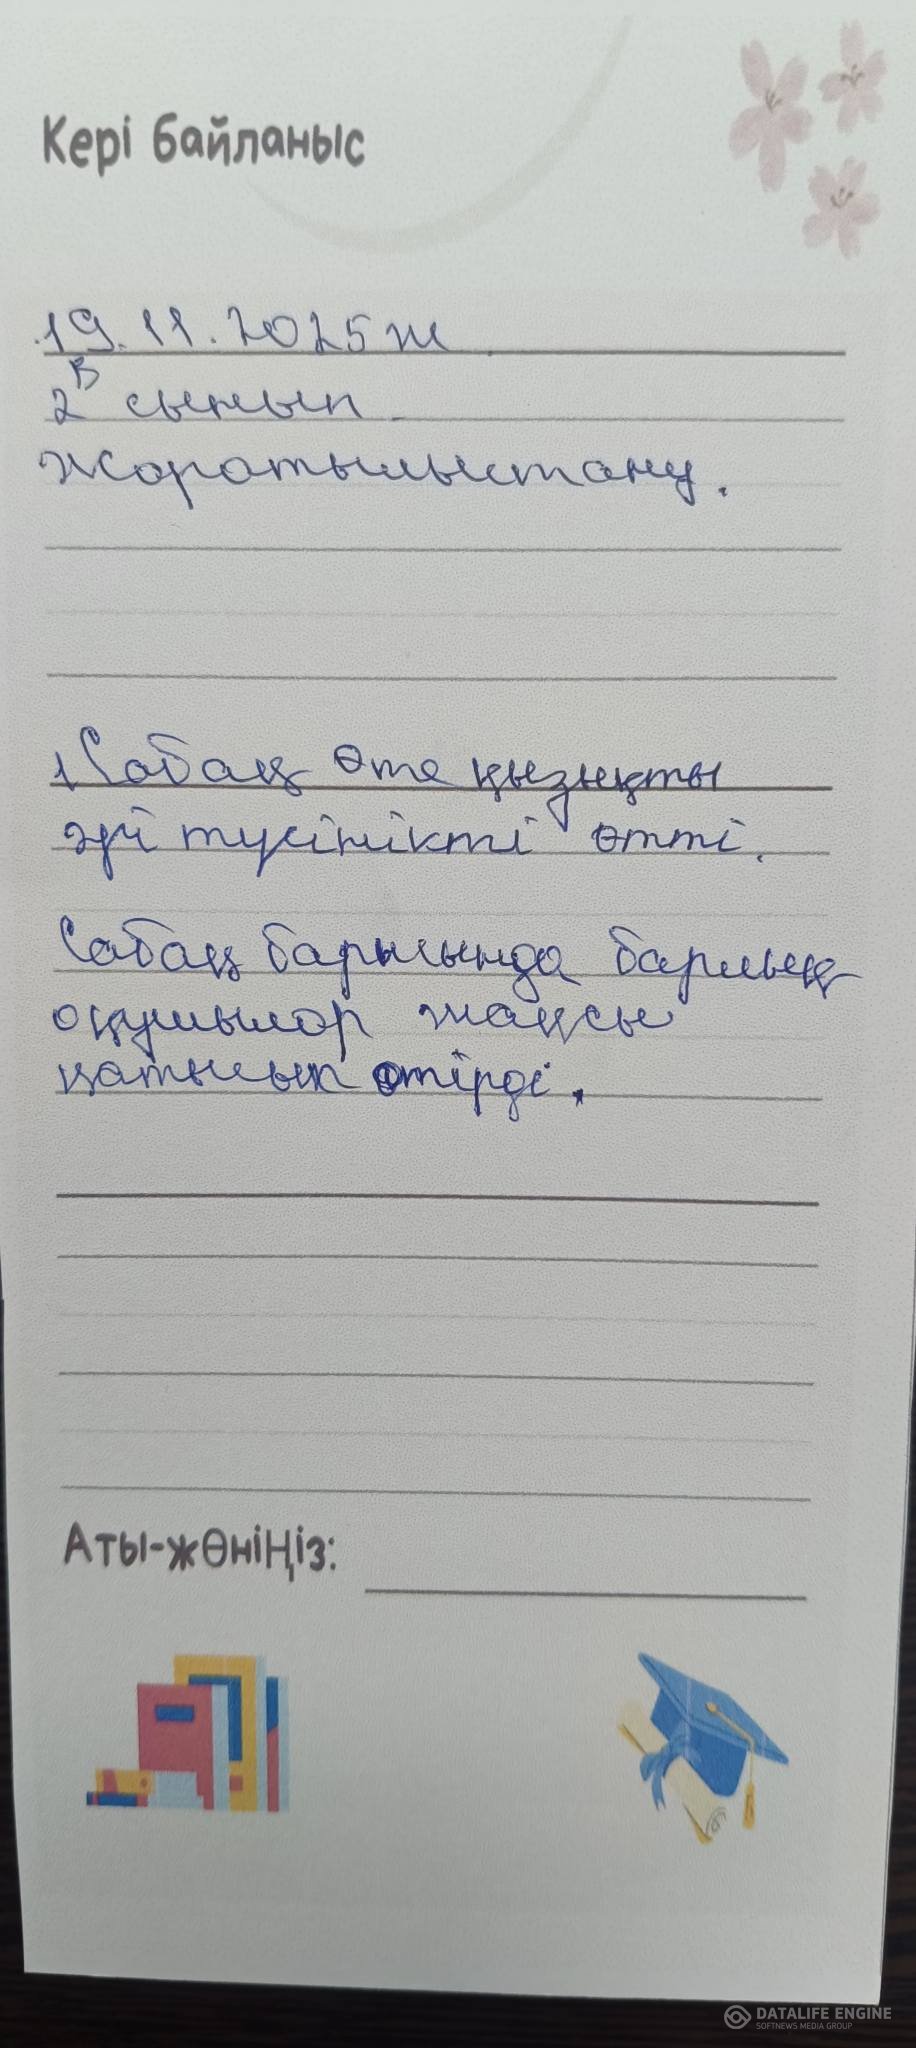 Кері байланыс
19.11.2025ж.
2В сынып.
Жаратылыстану.
Сабақ өте қызықты
әрі түсінікті өтті.
Сабақ барысында барлық
оқушылар жақсы
қатысып отырды.
Аты-жөніңіз:
DATALIFE ENGINE
SOFTNEWS MEDIA GROUP